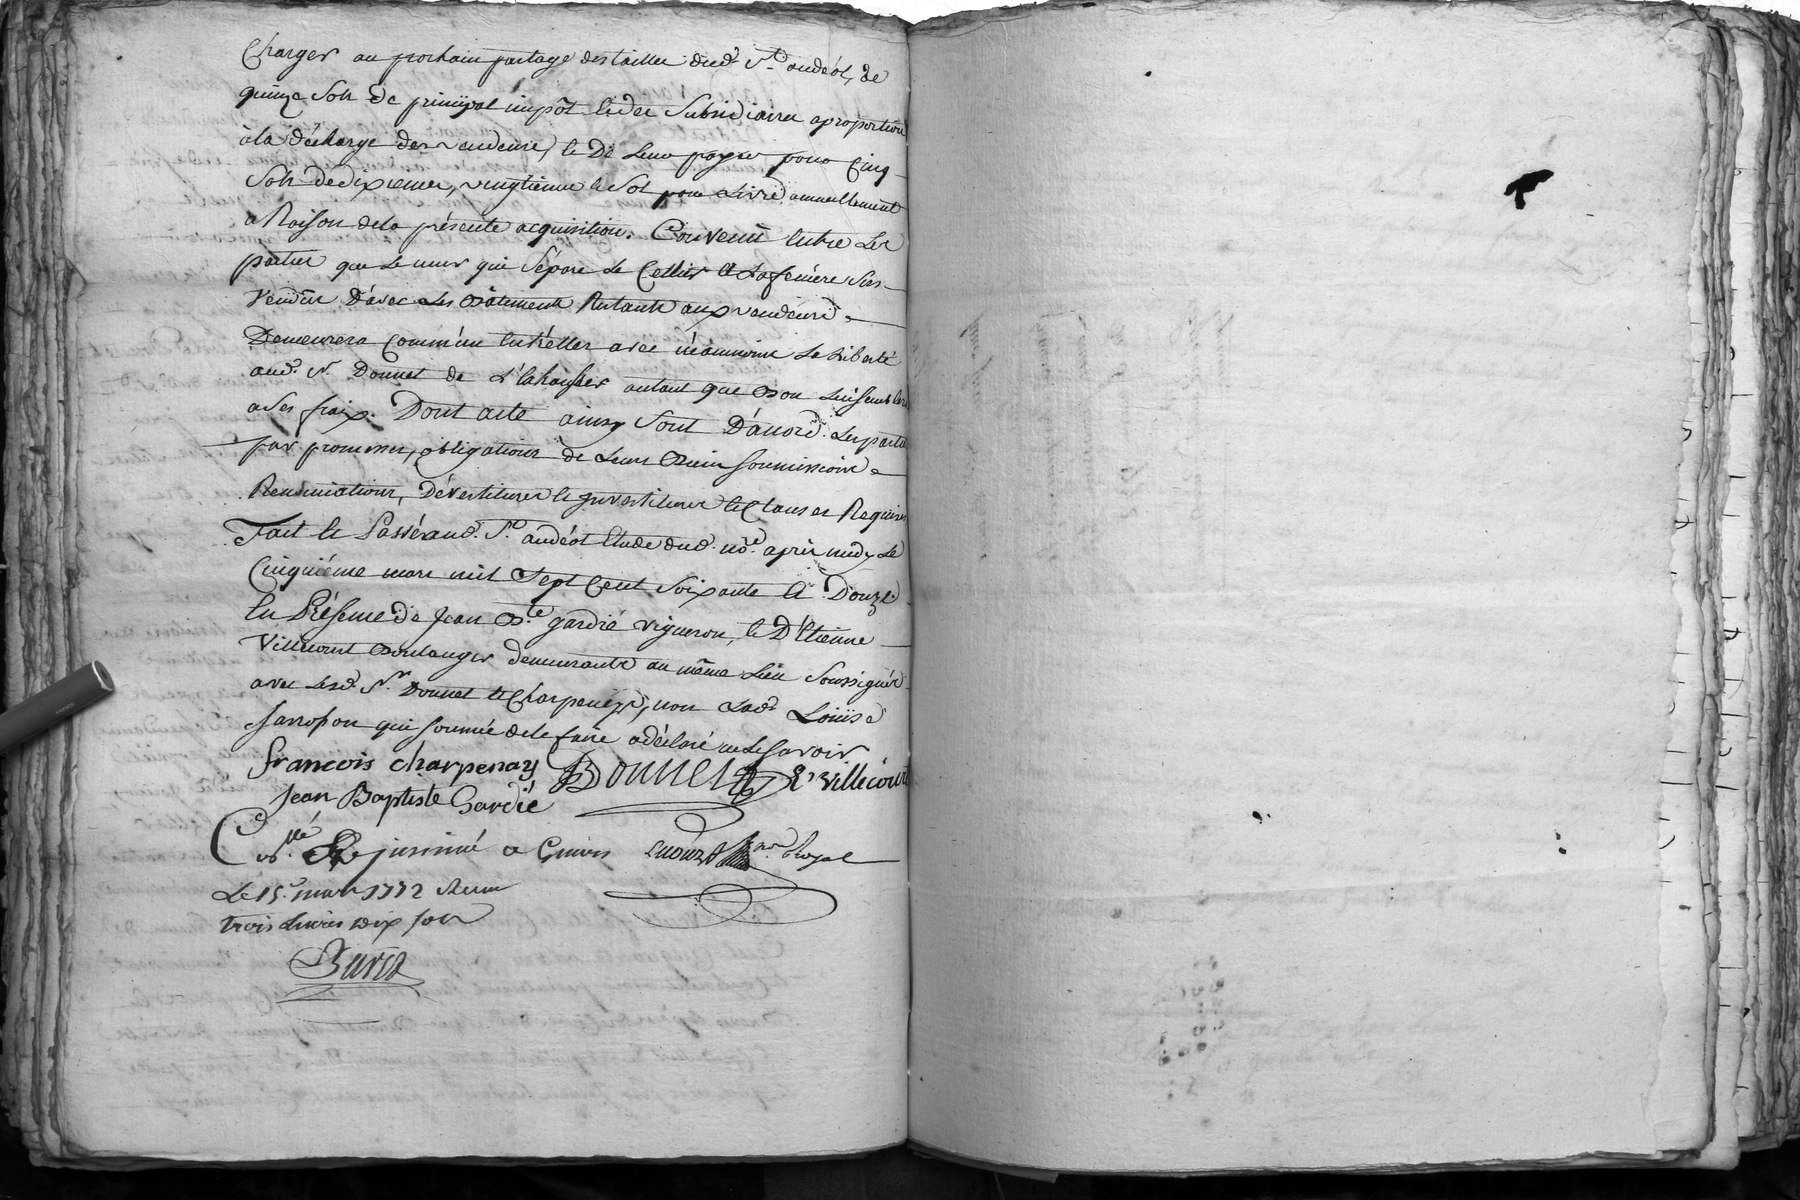 Charger au prochain partage des tailles dud. St. andéol, de
quinze Sols de principal impôt et des Subsidiaires a proportion
à la décharge des vendeurs, et De Leur payer pour Cinq
Sols de dixiemes, vingtiemes et Sol pour Livre annuellement
a Raison de la présente acquisition. Convenu Entre Les
parties que Le mur qui Sépare Le Cellier et La feniere Sus
Vendus D'avec Les Bâtiments Restants aux vendeurs
Demeurera Commun Entr'elles avec néanmoins La Liberté
aud. Sr. Donnet de L'Exhausser autant que Bon Lui Semblera
a Ses fraix. Dont acte ainsy Sont D'accord Les parties
par promesses, obligations de Leurs Biens Soumissions
Renonciations, Dévestitures et Investitures et Clauses Requises
Fait et Passé aud. St. andéol Etude dud. nore. après midy Le
Cinquiéme mars mil Sept Cent Soixante et Douze
En Présence de Jean Bte. gardié vigneron, et D'Etienne
Villecourt Boulanger demeurants au même Lieu Soussignés
avec Lesd. Srs. Donnet et Charpenay, non Lad. Loüise
Sarropon qui Sommée de le faire a déclaré ne Le Savoir
francois charpenay Donnet E. villecourt
Jean Baptiste Gardié
Cole. Et insinué a Givors nore. Royal
Le 15. mars 1772 Reçu
trois Livres dix Sols